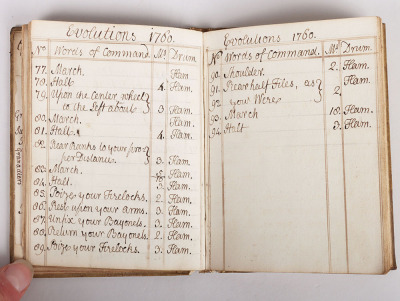 Evolutions 1760.
No. Words of Command. Mo. Drum
77. March. Flam
78. Halt. 4. Flam.
79. Upon the Center wheel
to the Left about 3 Flam.
80. March. Flam.
81. Halt. 4 Flam.
82. Rear Ranks to your pro
per Distance. 3. Flam.
83. March. Flam.
84. Halt. 3. Flam.
85. Poize your Firelocks. 2. Flam.
86. Rest upon your Arms. 3. Flam.
87. Unfix your Bayonets. 3. Flam.
88. Return your Bayonets. 2. Flam.
89. Poize your Firelocks. 3. Flam.
Evolutions 1760.
No Words of Command. Mo. Drum
90. Shoulder. 2. Flam.
91. Rear half Files, as
92. you Were 2
93. March 18. Flam
94. Halt 3. Flam.
Grenadier